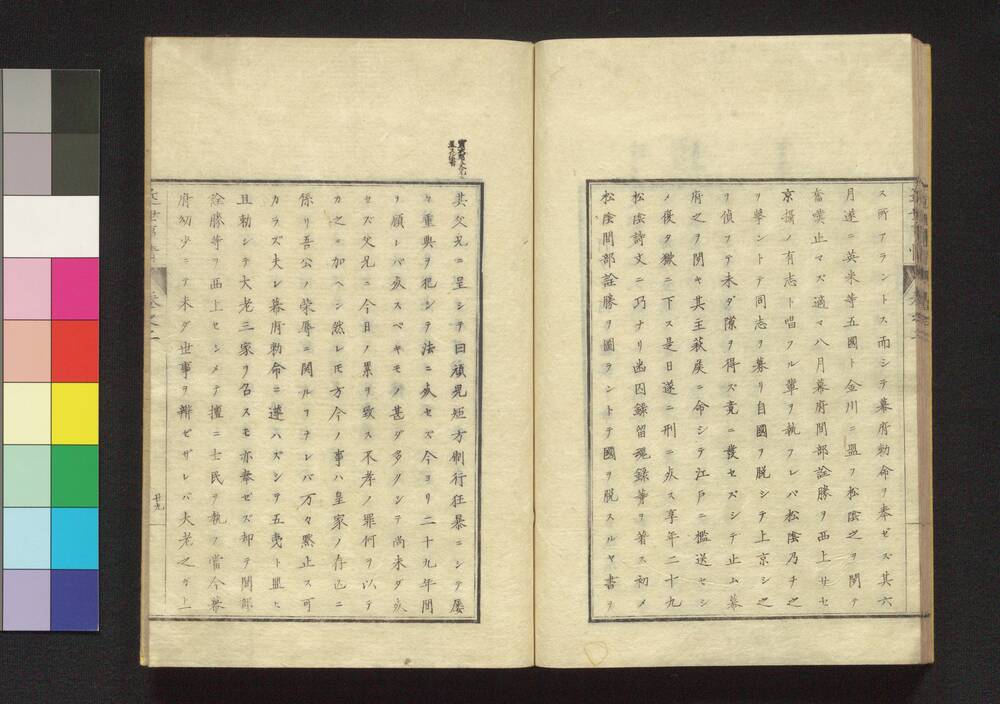 ス所アラントス而シテ幕府勅命ヲ奉ゼズ其六
月遂ニ英米等五國ト金川ニ盟フ松陰之ヲ聞テ
奮嘆止マズ適マ八月幕府間部詮勝ヲ西上サセ
京攝ノ有志ト唱フル輩ヲ執フレバ松陰乃チ之
ヲ擊ントテ同志ヲ募リ自國ヲ脱シテ上京シ之
ヲ偵フテ未ダ隙ヲ得ズ竟ニ發セズシテ止ム幕
府之ヲ聞キ其主萩矦ニ命シテ江戸ニ檻送セシ
メ後タ獄ニ下ス是日遂ニ刑ニ死ス享年二十九
松陰詩文ニ巧ナリ幽囚録留魂録等ヲ著ス初メ
松陰間部詮勝ヲ圖ラントテ國ヲ脱スルヤ書ヲ
其父兄ニ呈シテ曰頑兒矩方制行狂暴ニシテ屡
々重典ヲ犯シテ法ニ死セズ今ヨリ二十九年間
ヲ顧レバ死スベキモノ甚ダ多クシテ尚未ダ死
セズ父兄ニ今日ノ累ヲ致ス不孝ノ罪何ヲ以テ
カ之ニ加ヘシ然レ𪜈方今ノ事ハ皇家ノ存亡ニ
係リ吾公ノ榮辱ニ関ルヿナレバ万々黙止ス可
カラズ夫レ幕府勅命ニ遵ハズシテ五夷ト盟ヒ
且勅シテ大老三家ヲ召スモ亦奉ゼズ却テ間部
詮勝等ヲ西上セシメテ擅ニ士民ヲ執フ當今幕
府幼少ニテ未ダ世事ヲ辨ゼザレバ大老之ガ上
廿九